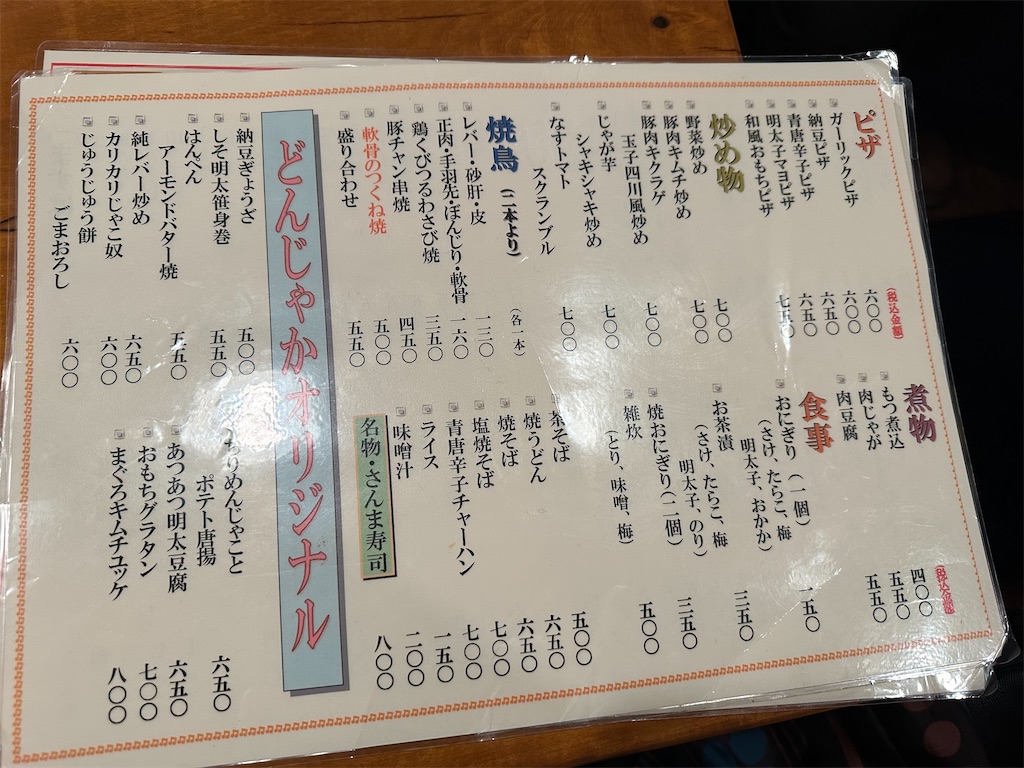 ピザ
(税込金額)
ガーリックピザ 六〇〇
納豆ピザ 六〇〇
青唐辛子ピザ 六五〇
明太子マヨピザ 六五〇
和風おもちピザ 七五〇
炒め物
野菜炒め 七〇〇
豚肉キムチ炒め 七〇〇
豚肉キクラゲ
玉子四川風炒め 七〇〇
じゃが芋
シャキシャキ炒め 七〇〇
なすトマト
スクランブル 七〇〇
焼鳥（二本より）
（各一本）
レバー・砂肝・皮 一三〇
正肉・手羽先・ぼんじり・軟骨 一六〇
鶏くびつるわさび焼 三五〇
豚チャン串焼 四五〇
軟骨のつくね焼 五〇〇
盛り合わせ 五五〇
煮物
(税込金額)
もつ煮込 四〇〇
肉じゃが 五五〇
肉豆腐 五五〇
食事
おにぎり（一個） 一五〇
（さけ、たらこ、梅
明太子、おかか）
お茶漬 三五〇
（さけ、たらこ、梅
明太子、のり）
焼おにぎり（二個） 三五〇
雑炊 五〇〇
（とり、味噌、梅）
茶そば 五〇〇
焼うどん 六五〇
焼そば 六五〇
塩焼そば 七〇〇
青唐辛子チャーハン 七〇〇
ライス 一五〇
味噌汁 二〇〇
名物・さんま寿司 八〇〇
どんじゃかオリジナル
納豆ぎょうざ 五〇〇
しそ明太笹身巻 五五〇
はんぺん
アーモンドバター焼 五五〇
純レバー炒め 六五〇
カリカリじゃこ奴 六〇〇
じゅうじゅう餅
ごまおろし 六〇〇
ちりめんじゃこと
ポテト唐揚 六五〇
あつあつ明太豆腐 六五〇
おもちグラタン 七〇〇
まぐろキムチユッケ 八〇〇